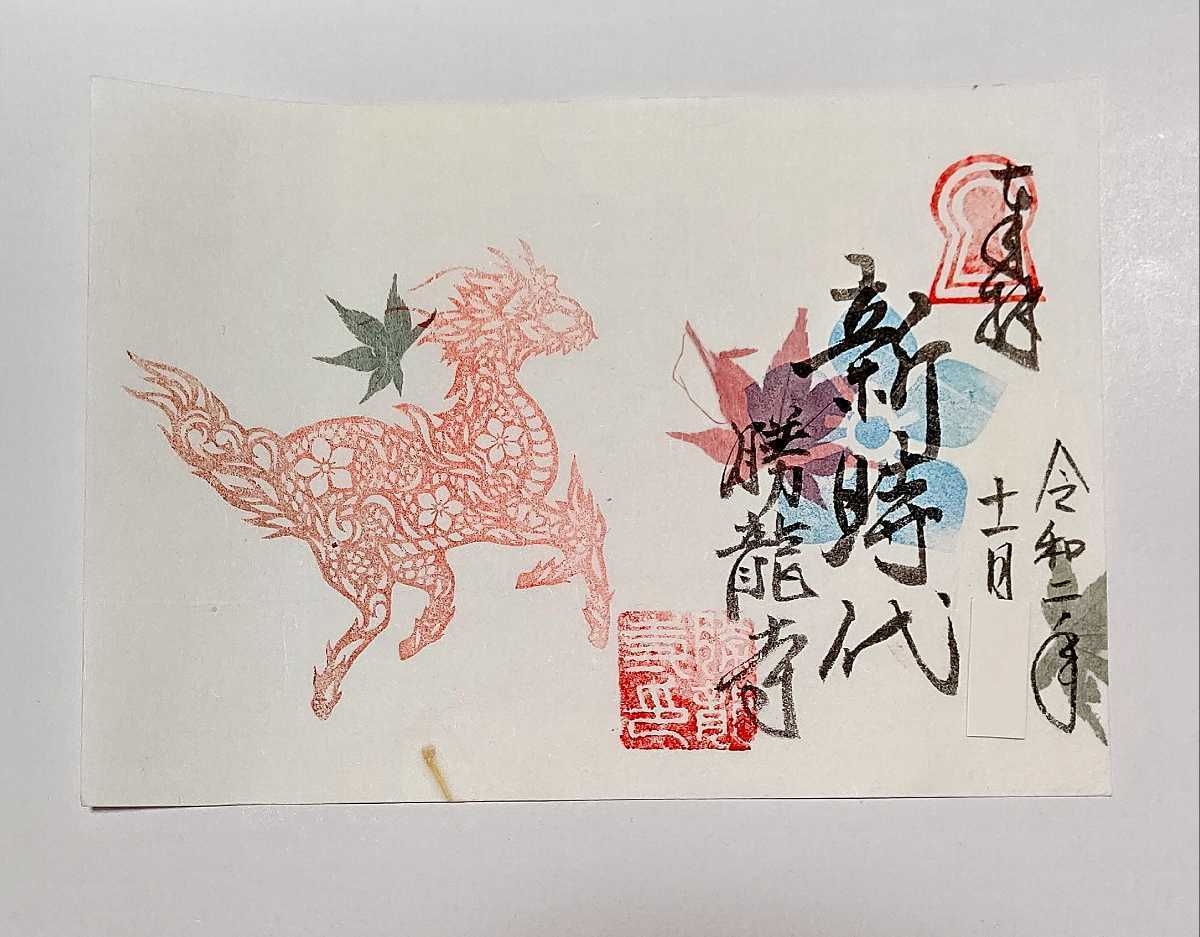 奉拝
令和二年
十一月
新時代
勝龍寺